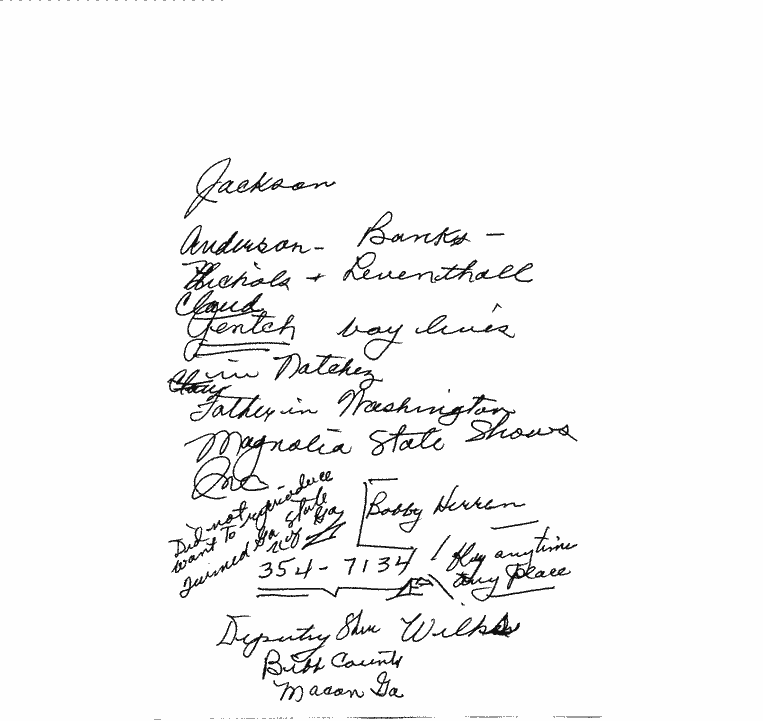 Jackson
Anderson - Banks -
Nichols + Leventhall
Claud
Gentch boy lives
in Natchez
Father in Washington
Magnolia State Shows
Inc -
Did not reproduce
want to
Turned Ga State
U of Ga
Bobby Herren
354-7134 ! fly anytime
any place
Deputy Wilkes
Bibb County
Macon Ga